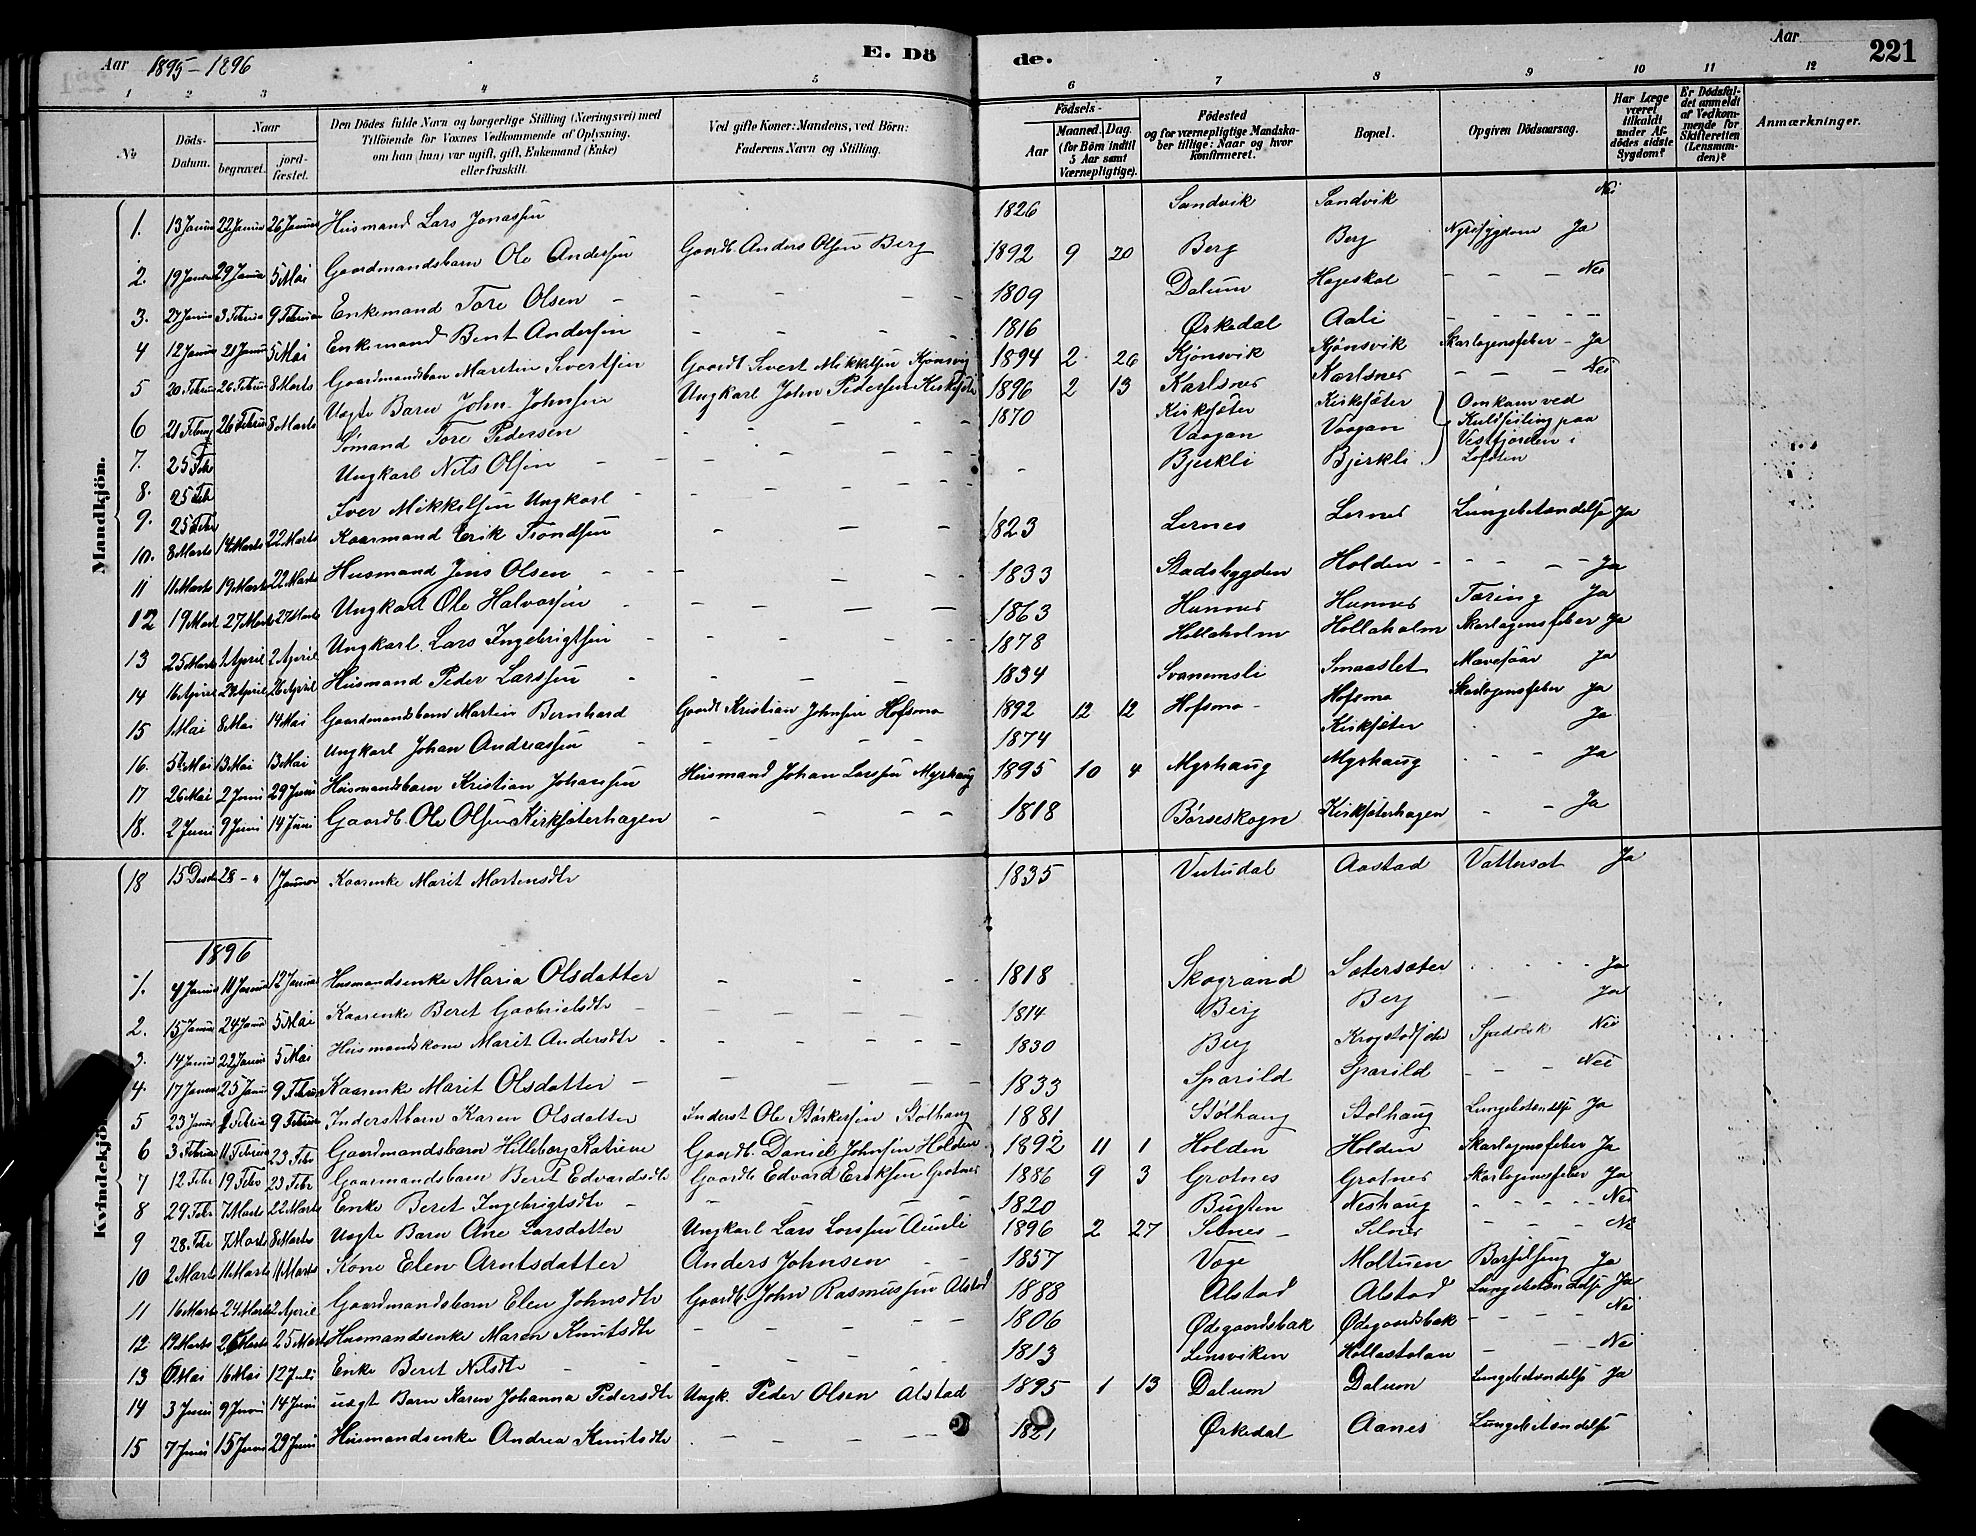 Aar 1895-1896
E. Dö
de.
Aar
221
1 2 3 4 5 6 7 8 9 10 11 12
No
Döds-Datum.
Naar
begravet.
jord-fæstet.
Den Dödes fulde Navn og borgerlige Stilling (Næringsvei) med
Tilföiende for Voxnes Vedkommende af Oplysning,
om han (hun) var ugift, gift, Enkemand (Enke)
eller fraskilt.
Ved gifte Koner: Mandens, ved Börn:
Faderens Navn og Stilling.
Födsels-
Aar
Maaned. Dag.
(for Börn indtil
5 Aar samt
Værnepligtige).
Födested
og for værnepligtige Mandska-
ber tillige: Naar og hvor
konfirmeret.
Bopæl.
Opgiven Dödsaarsag.
Har Læge
været
tilkaldt
under Af-
dödes sidste
Sygdom?
Er Dödsfal-
det anmeldt
af Vedkom-
mende for
Skifteretten
(Lensman-
den)?
Anmærkninger.
Mandkjön.
1. 13 Januar 22 Januar 26 Januar Husmand Lars Jonassen 1826 Sandvik Sandvik Nei
2. 19 Januar 29 Januar 5 Mai Gaardmandsbarn Ole Andersen Gaardb. Anders Olsen Berg 1892 9 20 Berg Berg Nyresygdom Ja
3. 27 Januar 3 Februar 9 Februar Enkemand Tore Olsen 1809 Dalum Hageskal Nei
4 12 Januar 21 Januar 5 Mai Enkemand Bent Andersen 1816 Ørkedal Aali
5 20 Februar 26 Februar 8 Marts Gaardmandsbarn Martin Sivertsen Gaardb Sivert Mikkelsen Kjønsvig 1894 2 26 Kjønsvik Kjønsvik Skarlagensfeber Ja
6 21 Februar 26 Februar 8 Marts Uægte Barn John Johnsen Ungkarl John Pedersen Kirksæter 1896 2 13 Karlsnes Karlsnes Nei
7. 25 Febr Sømand Tore Pedersen 1870 Kirksæter Kirksæter Omkom ved
8. 25 Feb Ungkarl Nils Olsen Vaagan Vaagan Kuldseiling paa
9. 25 Febr Iver Mikkelsen Ungkarl Bjerkli Bjerkli Vestfjorden i Lofoten
10. 8 Marts 14 Marts 22 Marts Kaarmand Erik Trondsen 1823 Lernes Lernes Lungebetændelse Ja
11 11 Marts 19 Marts 22 Marts Husmand Jens Olsen 1833 Stadsbygden Holden Ja
12 19 Mart 27 Marts 27 Marts Ungkarl Ole Halvorsen 1863 Hunnes Hunnes Tæring Ja
13 25 Marts 1 April 2 April Ungkarl Lars Ingebrigtsen 1878 Hollaholm Hollaholm Skarlagensfeber Ja
14 16 April 24 April 26 April Husmand Peder Larssen 1834 Svanemsli Smaaslet Mavesaar Ja
15 1 Mai 8 Mai 14 Mai Gaardmandsbarn Martin Bernhard Gaardb Kristian Johnsen Hofsmo 1892 12 12 Hofsmo Hofsmo Skarlagensfeber Ja
16. 5te Mai 13 Mai 13 Mai Ungkarl Johan Andreassen 1874 Kirksæter Ja
17 26 Mai 2 Juni 29 Juni Husmandsbarn Kristian Johansen Husmand Johan Larssen Myrhaug 1895 10 4 Myrhaug Myrhaug Ja
18. 2 Juni 9 Juni 14 Juni Gaardb. Ole Olsen Kirksæterhagen 1818 Børseskogn Kirksæterhagen Ja
Kvindekjön.
18 15 Decbr 28 1 Januar Kaarenke Marit Mortensdtr 1835 Vutudal Aastad Vattersot Ja
1896
1. 4 Januar 11 Januar 12 Januar Husmandsenke Maria Olsdatter 1818 Skogrand Sætersæter Ja
2. 15 Januar 24 Januar 5 Mai Kaarenke Beret Gabrielsdtr 1814 Berg Berg Ja
3. 14 Januar 22 Januar 5 Mai Husmandskone Marit Andersdtr 1830 Berg Krogstadsæter Spedalsk Nei
4. 17 Januar 25 Januar 9 Februar Kaarenke Marit Olsdatter 1833 Sparild Sparild Nei
5 23 Januar 1 Februar 9 Februar Inderstbarn Karen Olsdatter Inderst Ole Størkersen Stølhaug 1881 Stølhaug Stølhaug Lungebetændelse Ja
6 3 Februar 11 Februar 23 Febr Gaardmandsbarn Hilleborg Katrine Gaardb. Daniel Johnsen Holden 1892 11 1 Holden Holden Skarlagensfeber Ja
7 12 Febr 19 Febr 23 Febr Gaarmandsbarn Beret Edvardsdtr Gaardb Edvard Eriksen Grotnes 1886 9 3 Grotnes Grotnes Skarlagensfeber Ja
8 29 Febr 7 Marts 22 Marts Enke Beret Ingebrigtsdtr 1820 Bugten Neshaug Nei
9 28 Febr 7 Marts 8 Marts Uægte Barn Ane Larsdatter Ungkarl Lars Larssen Aunli 1896 2 27 Selnes Selnes Nei
10 2 Marts 11 Marts 11 Marts Kone Elen Arntsdatter Anders Johnsen 1857 Vage Moltuen Barselseng Ja
11 16 Marts 24 Marts 2 April Gaardmandsbarn Elen Johnsdtr Gaardb. John Rasmussen Alstad 1888 Alstad Alstad Lungebetændelse Ja
12 19 Marts 26 Marts 25 Marts Husmandsenke Maren Knutsdtr 1806 Ødegaardsbak Ødegaardsbak Nei
13 6 Mai 16 Mai 12 Juli Enke Beret Nilsdtr 1813 Lensviken Hollastølan Nei
14 3 Juni 9 Juni 14 Juni uægt Barn Karen Johanna Pedersdtr Ungk. Peder Olsen Alstad 1895 1 13 Dalum Dalum Lungebetændelse Ja
15 7 Juni 15 Juni 29 Juni Husmandsenke Andrea Knutsdtr 1821 Ørkedal Aanes Lungebetændelse